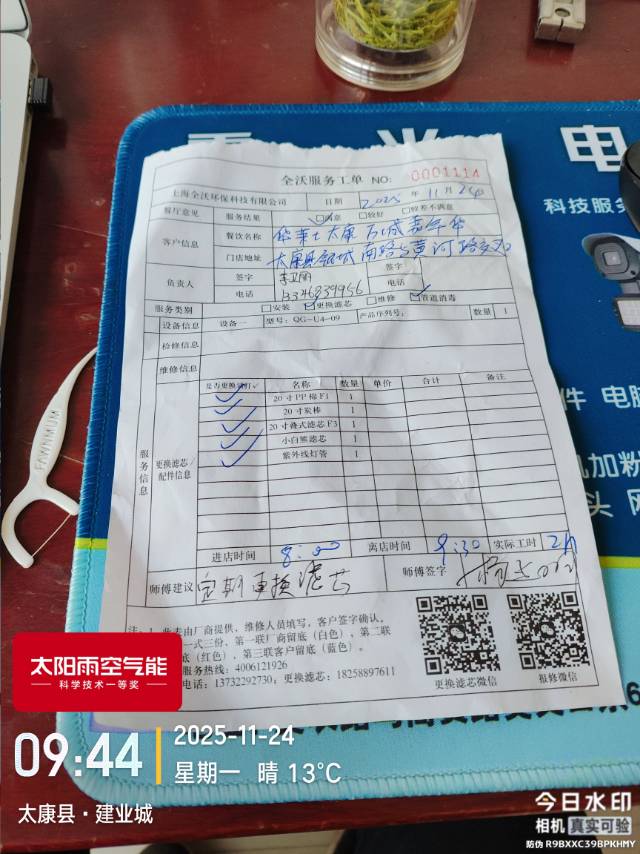 电
科技服务
全沃服务工单 NO: 0001114
上海全沃环保科技有限公司 日期 2025 年 11 月 24日
餐厅意见 服务结果 满意 较好 较差不满意
客户信息 餐饮名称 华莱士太康
门店地址 太康县 南路与黄河路交
负责人 签字 签字
电话 13346839966 电话
服务类别 安装 更换滤芯 维修 管道消毒
设备信息 设备一 型号: QG-U4-09 产品序列号: 数量 1
检修信息
维修信息
服务信息 更换滤芯/配件信息
是否更换请打✓ 名称 数量 单价 合计 备注
✓ 20寸PP棉F1 1
✓ 20寸炭棒 1
✓ 20寸叠式滤芯F3 1
✓ 小白熊滤芯 1
✓ 紫外线灯管 1
进店时间 8:00 离店时间 9:30 实际工时 2h
师傅建议 定期更换滤芯 师傅签字
注: 1、此表由厂商提供、维修人员填写，客户签字确认。
一式三份、第一联厂商留底（白色）、第二联
底（红色）、第三联客户留底（蓝色）。
服务热线: 4006121926
电话: 13732292730; 更换滤芯: 18258897611
更换滤芯微信 报修微信
FAWNMUM
件 电脑
加粉
头 网
太阳雨空气能
科学技术一等奖
09:44
2025-11-24
星期一 晴 13°C
太康县·建业城
今日水印
相机 真实可验
防伪 R9BXXC39BPKHMY